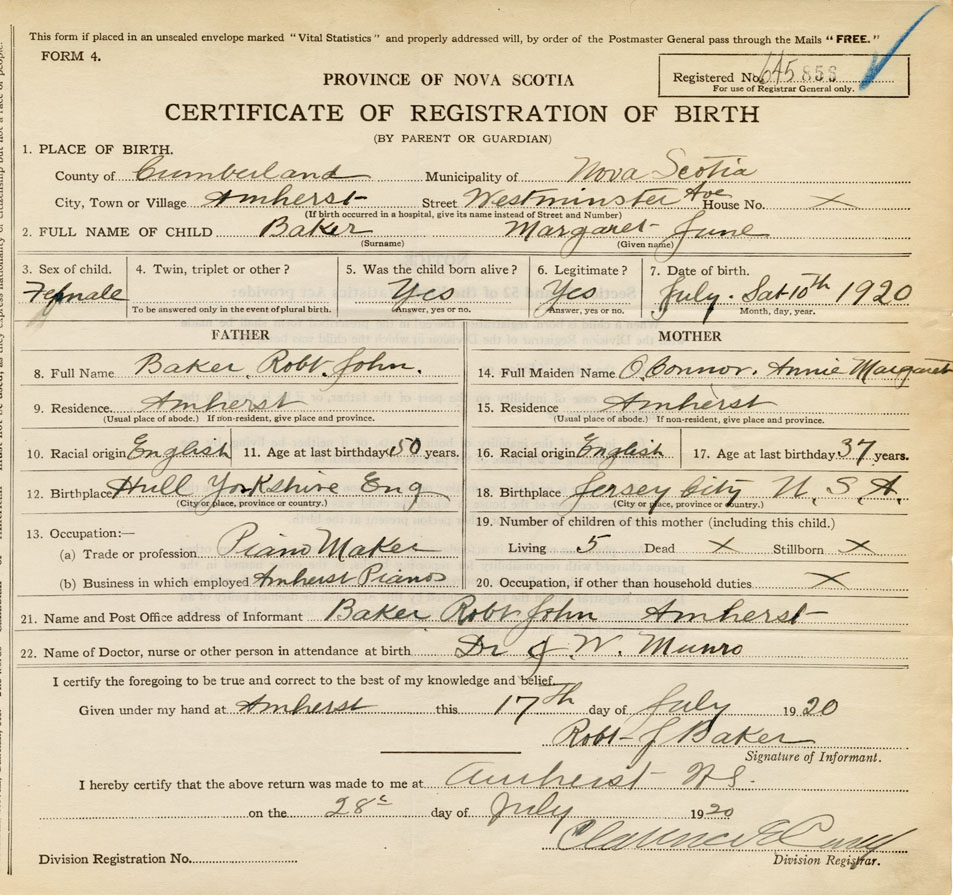 This form if placed in an unsealed envelope marked "Vital Statistics" and properly addressed will, by order of the Postmaster General pass through the Mails "FREE."
FORM 4.
Registered No. 645856
For use of Registrar General only.
PROVINCE OF NOVA SCOTIA
CERTIFICATE OF REGISTRATION OF BIRTH
(BY PARENT OR GUARDIAN)
1. PLACE OF BIRTH.
County of Cumberland Municipality of Nova Scotia
City, Town or Village Amherst Street Westminster Ave House No. X
(If birth occurred in a hospital, give its name instead of Street and Number)
2. FULL NAME OF CHILD Baker Margaret June
(Surname) (Given name)
3. Sex of child. 4. Twin, triplet or other? 5. Was the child born alive? 6. Legitimate? 7. Date of birth.
Female Yes Yes July. Sat 10th 1920
To be answered only in the event of plural birth. Answer, yes or no. Answer, yes or no. Month, day, year.
FATHER
8. Full Name Baker Robt. John.
9. Residence. Amherst
(Usual place of abode.) If non-resident, give place and province.
10. Racial origin English 11. Age at last birthday 50 years.
12. Birthplace Hull Yorkshire Eng
(City or place, province or country.)
13. Occupation:—
(a) Trade or profession. Piano Maker
(b) Business in which employed Amherst Pianos
MOTHER
14. Full Maiden Name O.Connor. Annie Margaret
15. Residence Amherst
(Usual place of abode.) If non-resident, give place and province.
16. Racial origin English 17. Age at last birthday. 37 years.
18. Birthplace Jersey City U. S. A.
(City or place, province or country.)
19. Number of children of this mother (including this child.)
Living 5 Dead X Stillborn X
20. Occupation, if other than household duties. X
21. Name and Post Office address of Informant Baker Robt John Amherst
22. Name of Doctor, nurse or other person in attendance at birth Dr J. W. Munro
I certify the foregoing to be true and correct to the best of my knowledge and belief.
Given under my hand at Amherst this 17th day of July 1920
Robt J Baker
Signature of Informant.
I hereby certify that the above return was made to me at Amherst N.S.
on the 28 day of July 1920
Clarence E
Division Registrar.
Division Registration No.